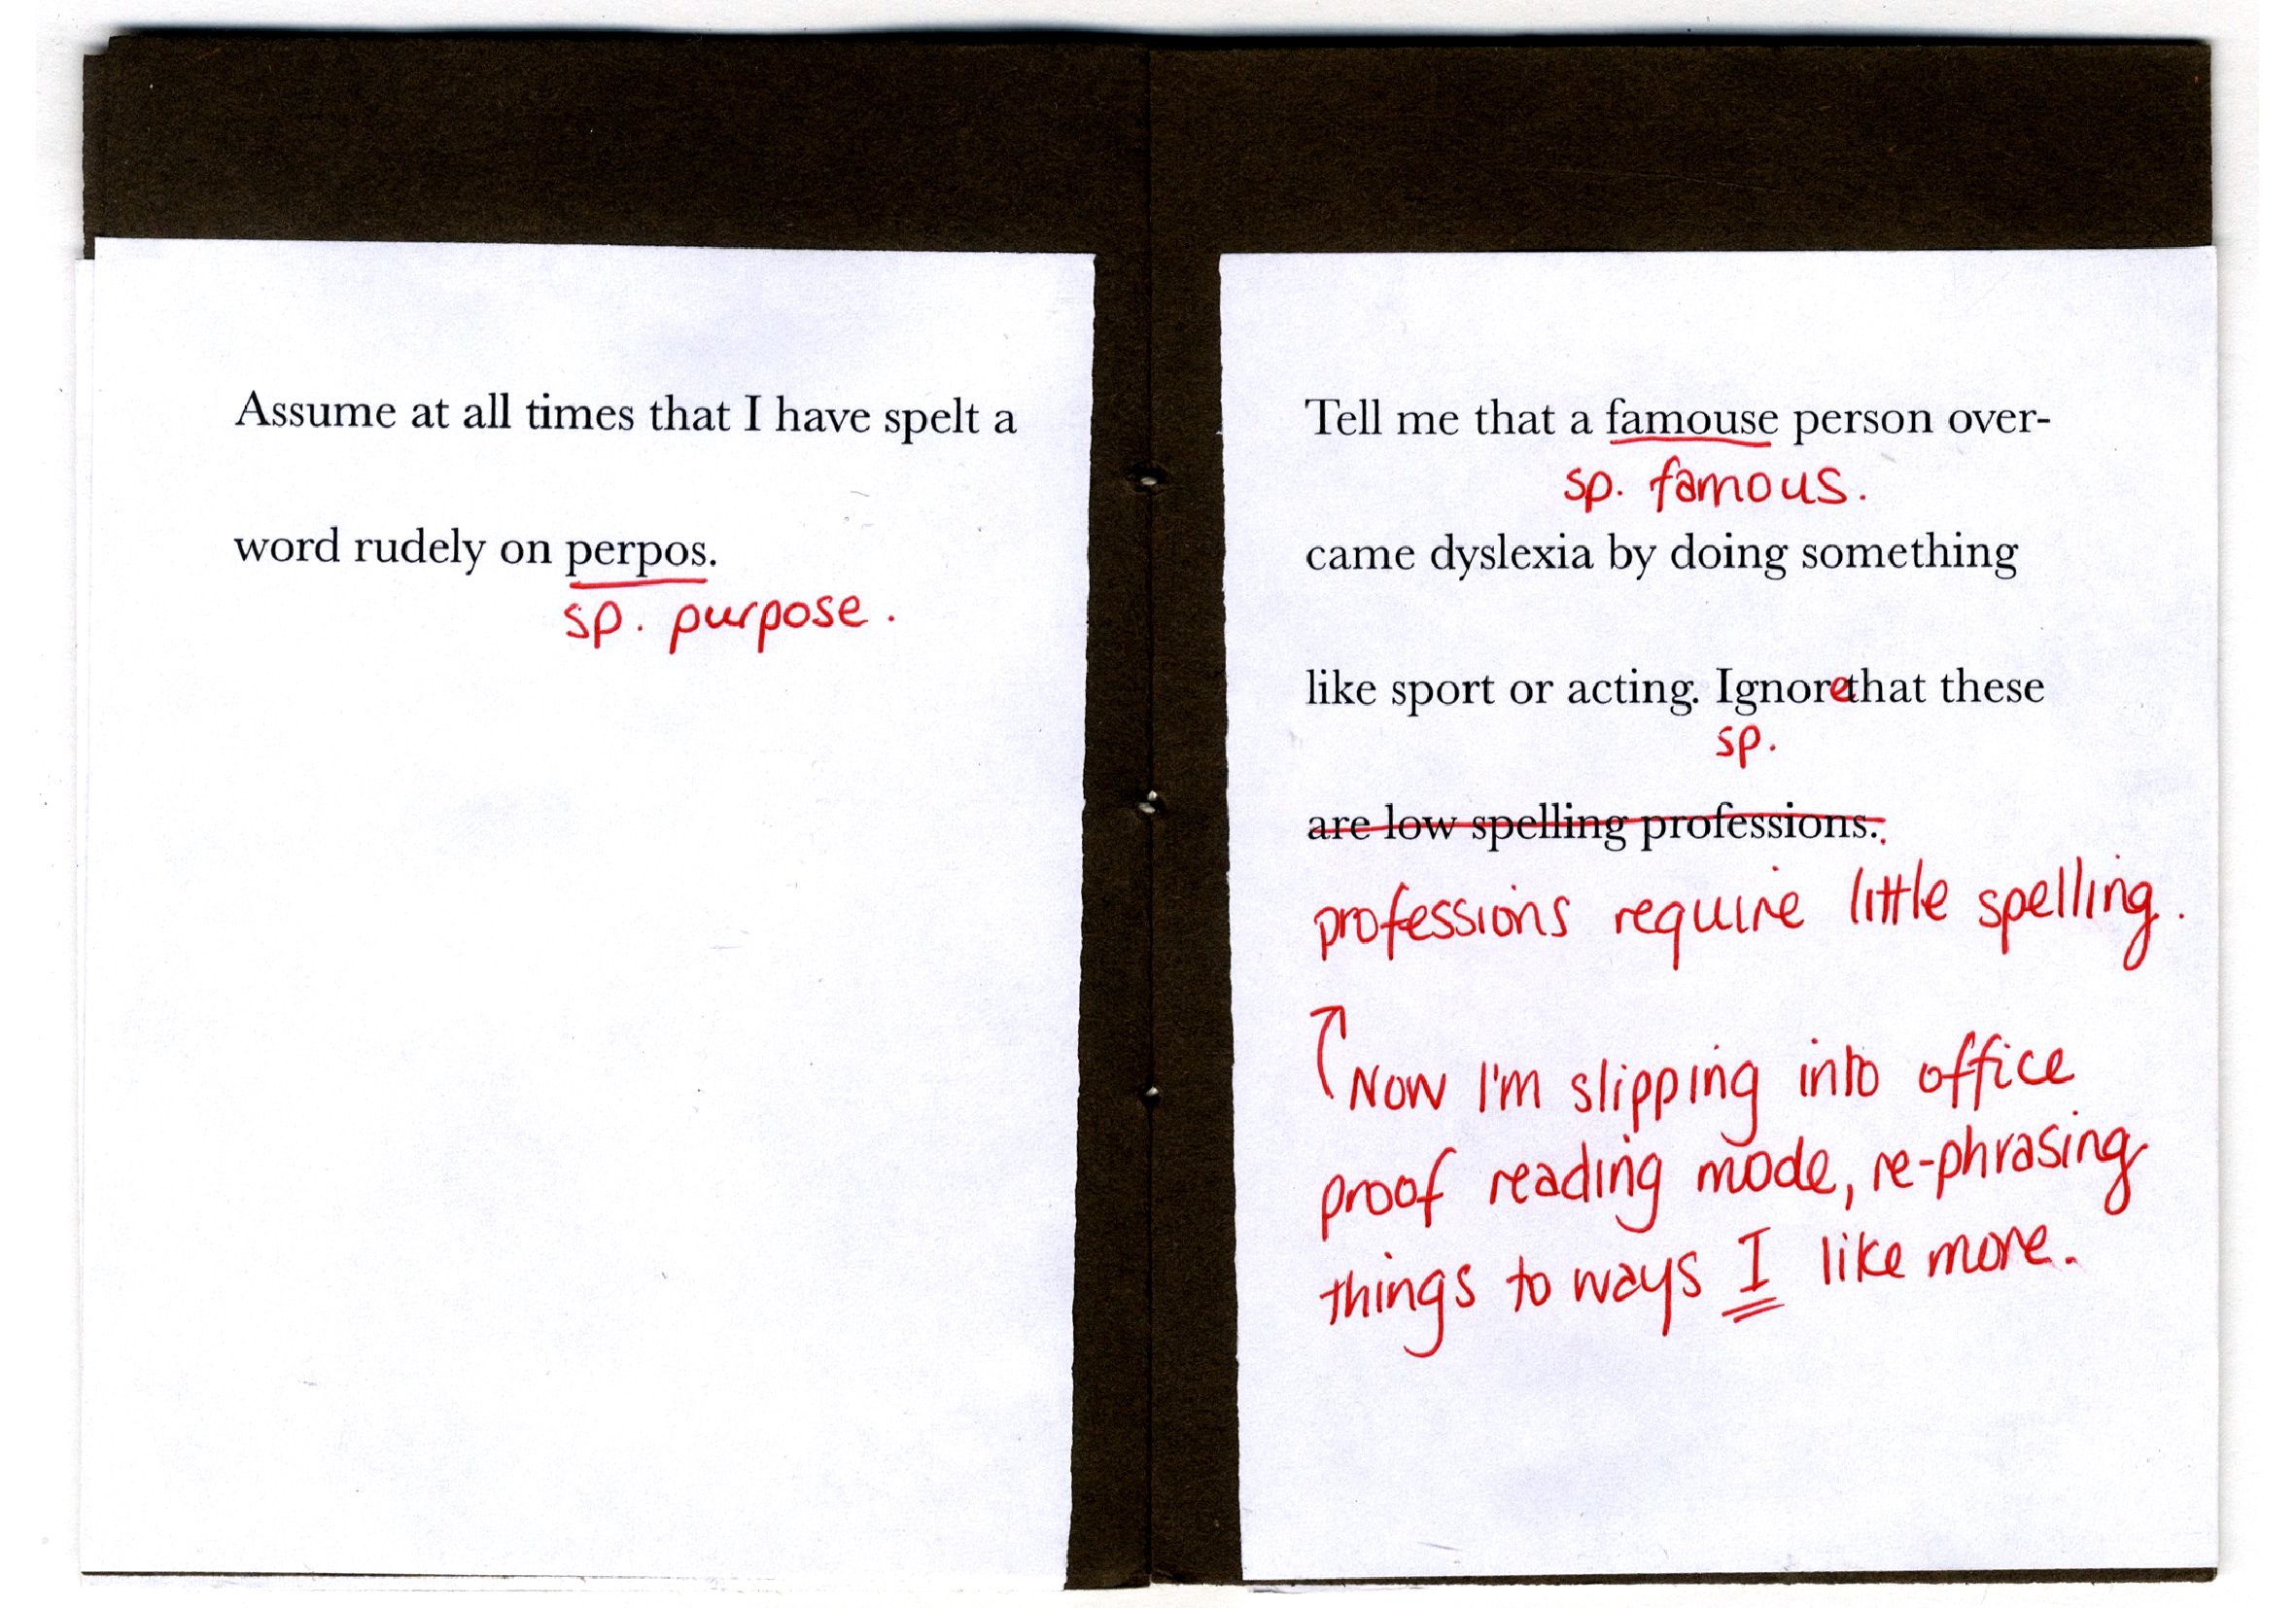 Assume at all times that I have spelt a
word rudely on perpos.
sp. purpose.
Tell me that a famouse person over-
sp. famous.
came dyslexia by doing something
like sport or acting. Ignorethat these
sp.
are low spelling professions.
professions require little spelling.
Now I'm slipping into office
proof reading mode, re-phrasing
things to ways I like more.